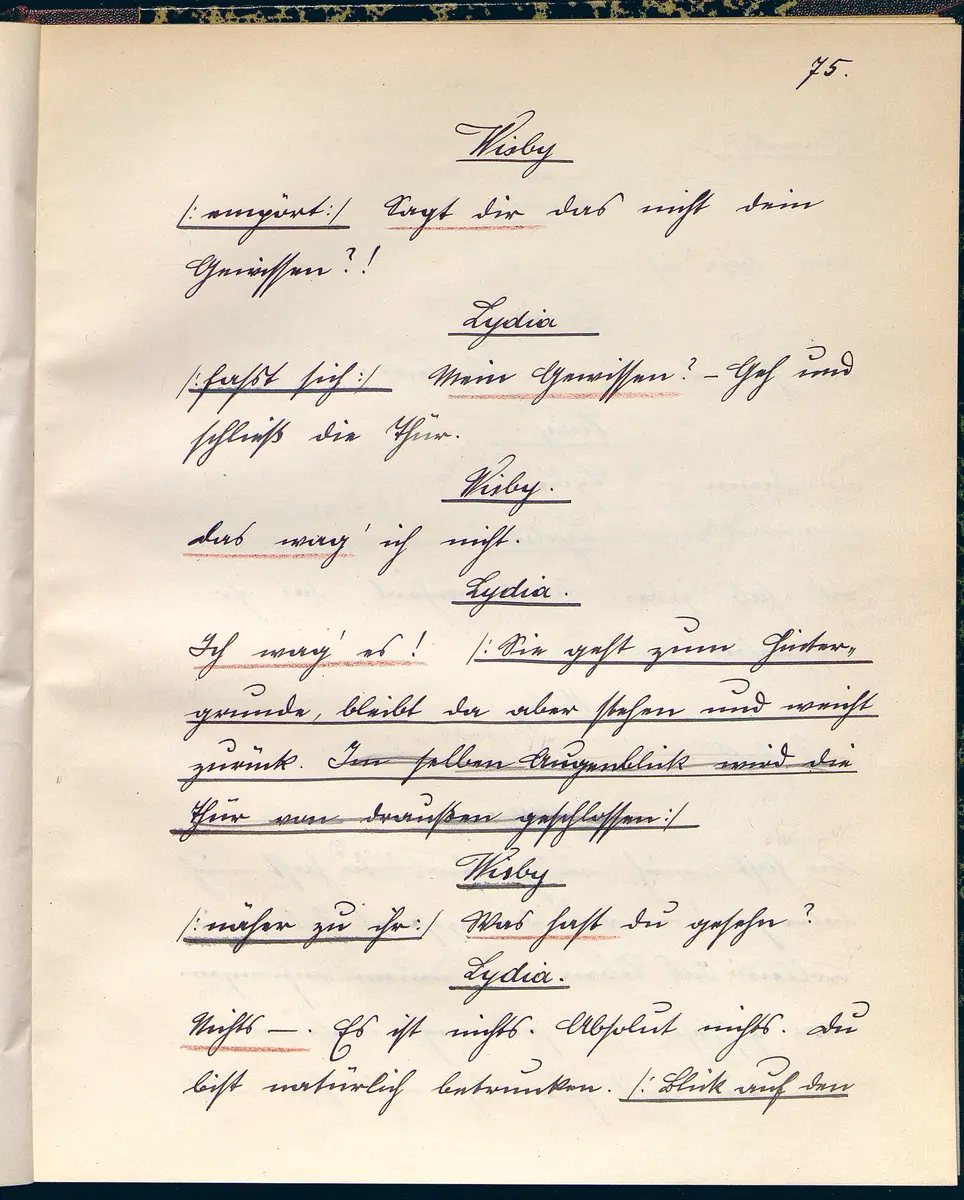 75.
Wisby
/: empört:/ Sagt dir das nicht dein
Gewissen?!
Lydia
/: fasst sich:/ Mein Gewissen? – Geh und
schließ die Thür.
Wisby.
Das wag' ich nicht.
Lydia.
Ich wag' es! /: Sie geht zum Hinter-
grunde, bleibt da aber stehen und weicht
zurück. Im selben Augenblick wird die
Thür von draußen geschlossen:/
Wisby
/: näher zu ihr:/ Was hast du gesehn?
Lydia.
Nichts —. Es ist nichts. Absolut nichts. Du
bist natürlich betrunken. /: Blick auf den